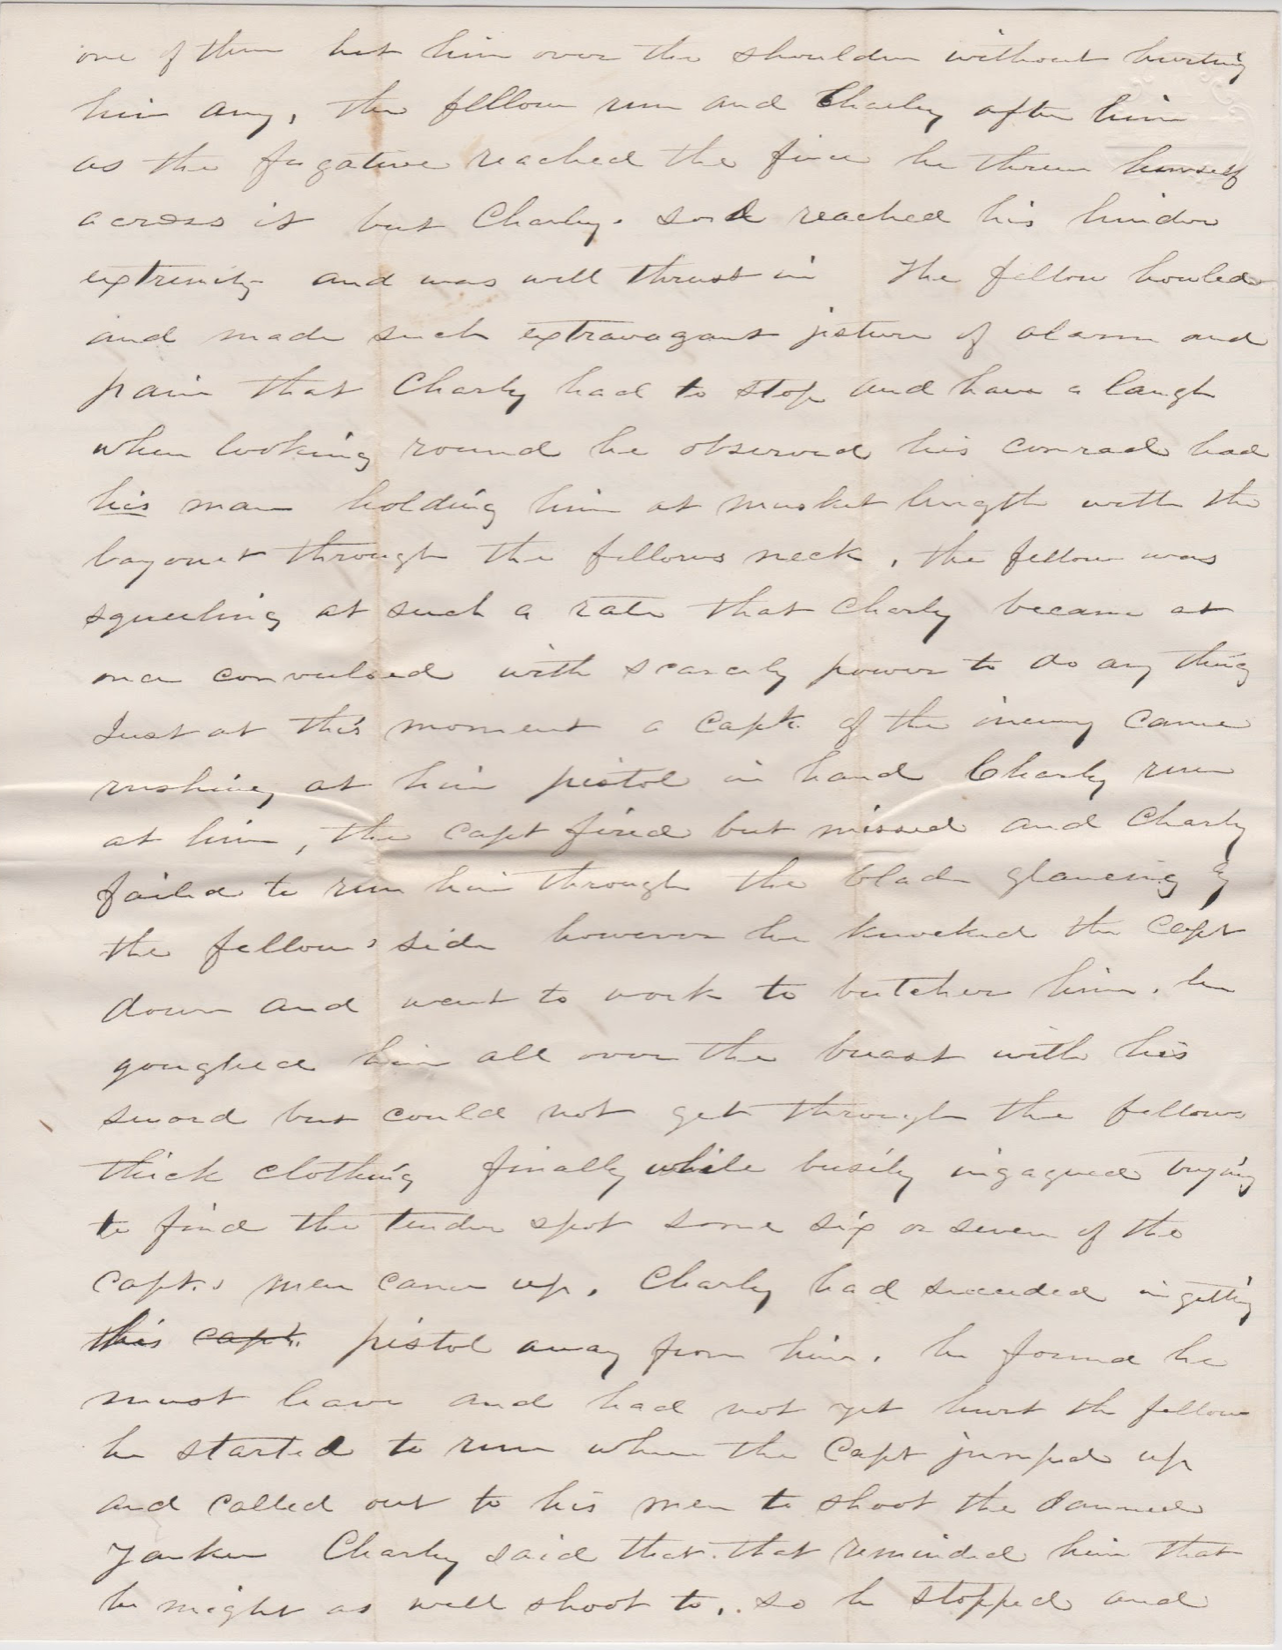 one of them hit him over the shoulder without hurting
him any, the fellow run and Charley after him
as the fugative reached the fence he threw himself
across it but Charley. sord reached his hinder
extremity and was well thrust in The fellow howled
and made such extravagant jesture of alarm and
pain that Charley had to stop and have a laugh
when looking round he observed his comrad had
his man holding him at musket length with the
bayonet through the fellows neck, the fellow was
squeeling at such a rate that Charly became at
once convulsed with scarcely power to do any thing
Just at this moment a Capt. of the inemy came
rushing at him pistol in hand Charly run
at him, the capt fired but missed and Charly
failed to run him through the blade glancing by
the fellow's side however he knocked the Capt
down and went to work to butcher him. he
goughed him all over the breast with his
sword but could not get through the fellows
thick clothing finally while busily ingagued trying
to find the tender spot some six or seven of the
Capt.s men came up. Charly had suceeded in getting
this capt. pistol away from him. he found he
must leave and had not yet hurt the fellow
he started to run when the Capt jumped up
and called out to his men to shoot the damned
Yankee Charly said that. that reminded him that
he might as well shoot to,. so he stopped and